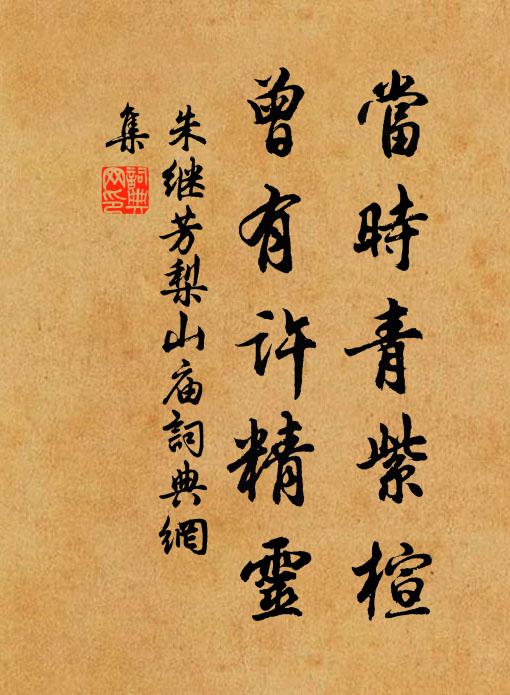 當時青紫楦
曾有許精靈
朱继芳梨山庙詞典網
集
詞典
网印